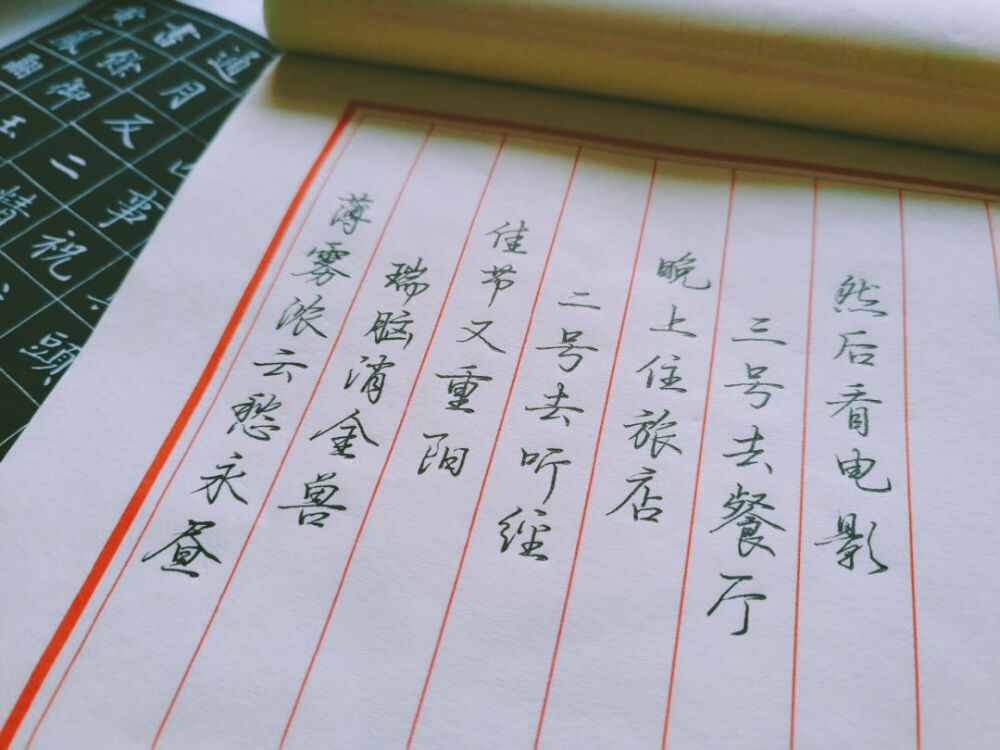 薄雾浓云愁永昼
瑞脑消金兽
佳节又重阳
二号去听经
晚上住旅店
三号去餐厅
然后看电影
書你御
通月反二
事祝
頭